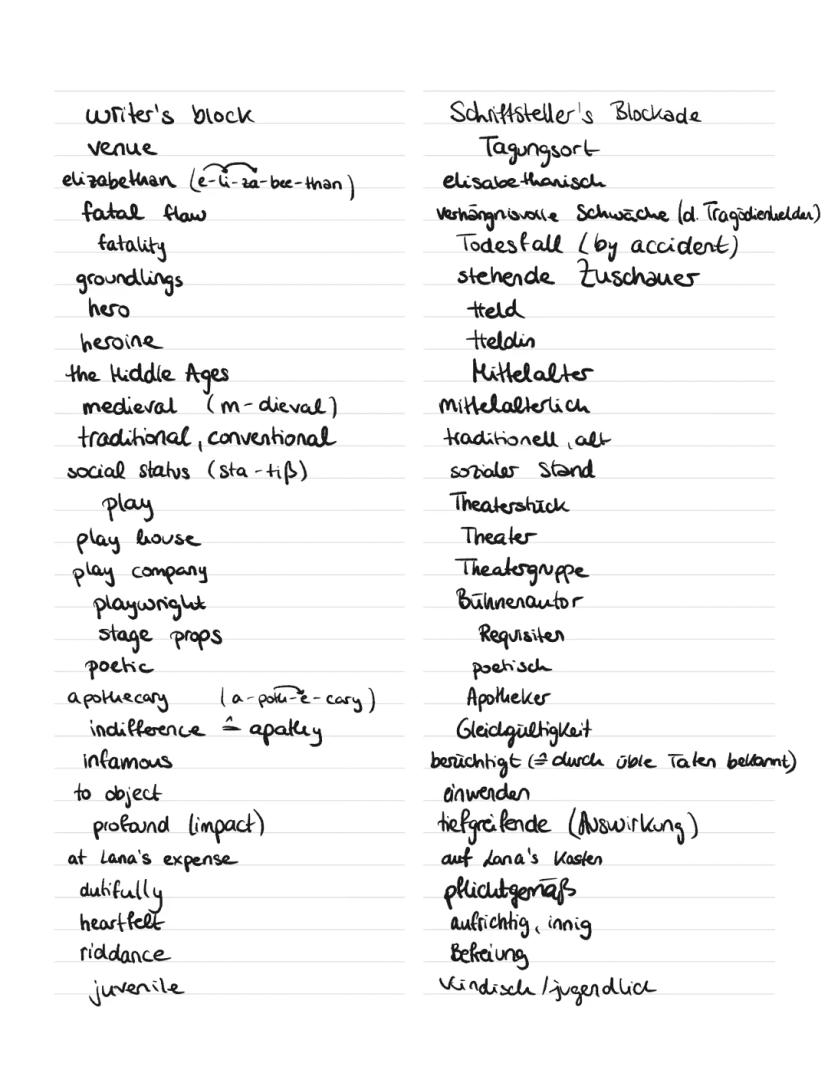 writer's block Schriftsteller's Blockade
venue Tagungsort
elizabethan (e-li-za-bee-than) elisabethanisch
fatal flaw verhängnisvolle Schwäche (d. Tragödienhelden)
fatality Todesfall (by accident)
groundlings stehende Zuschauer
hero Held
heroine Heldin
the Middle Ages Mittelalter
medieval (m-dieval) mittelalterlich
traditional, conventional traditionell, alt
social status (sta-tiß) sozialer Stand
play Theaterstück
play house Theater
play company Theatergruppe
playwright Bühnenautor
stage props Requisiten
poetic poetisch
apothecary (a-poth-e-cary) Apotheker
indifference ≙ apathy Gleichgültigkeit
infamous berüchtigt (≙ durch üble Taten bekannt)
to object einwenden
profound (impact) tiefgreifende (Auswirkung)
at Lana's expense auf Lana's Kosten
dutifully pflichtgemäß
heartfelt aufrichtig, innig
riddance Befreiung
juvenile kindisch / jugendlich